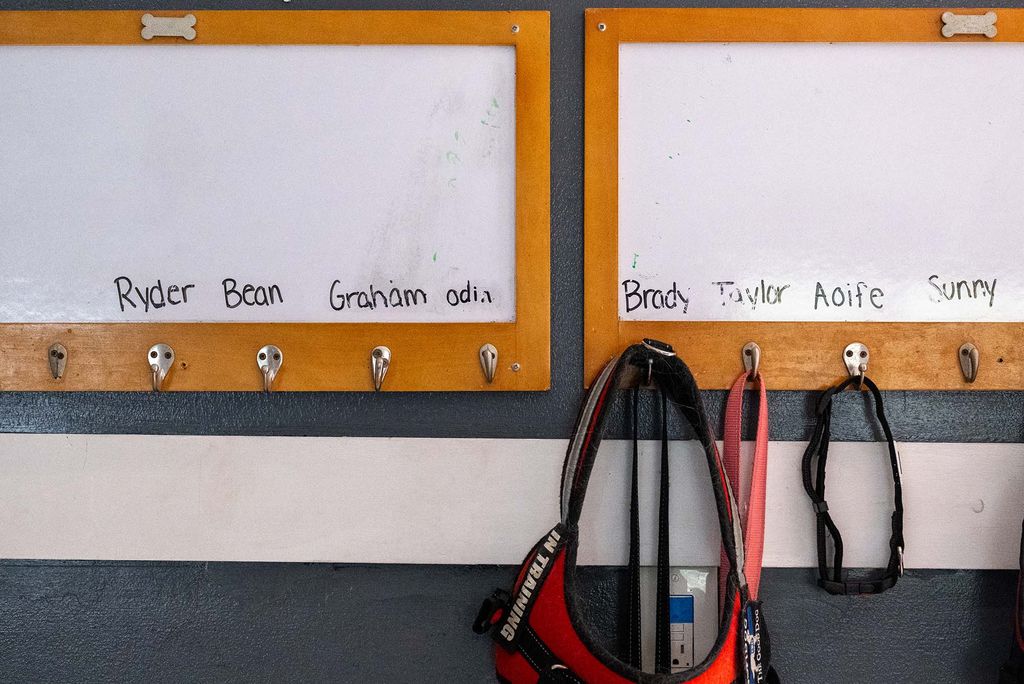 Ryder Bean Graham odin
Brady Taylor Aoife Sunny
IN TRAINING
The Good Dog